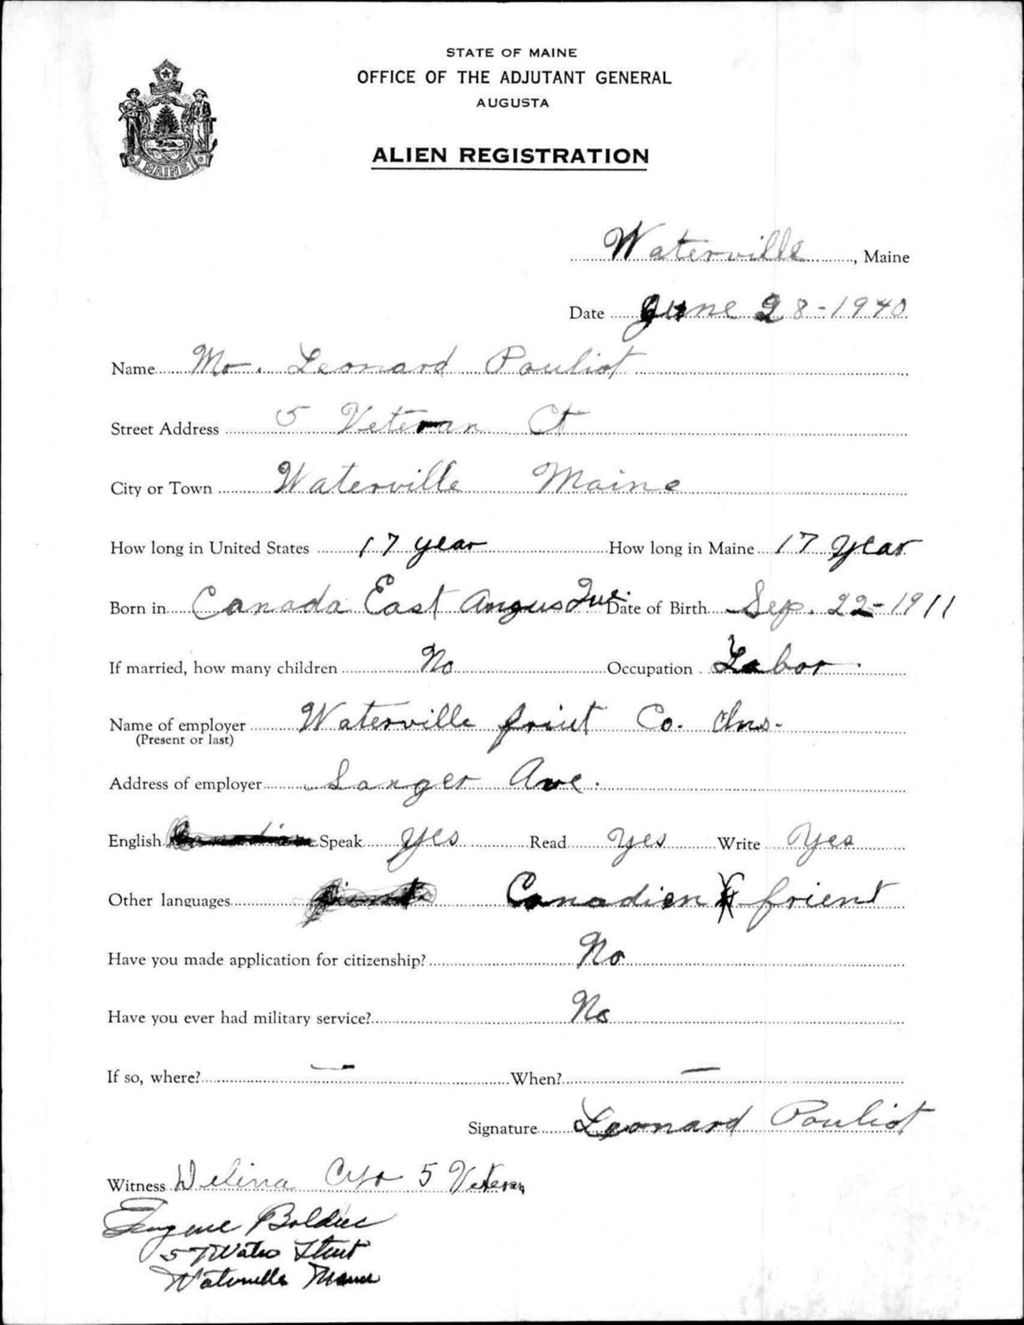 STATE OF MAINE
OFFICE OF THE ADJUTANT GENERAL
AUGUSTA
ALIEN REGISTRATION
MAINE
Waterville, Maine
Date June 28-1940
Name Mr. Leonard Pouliot
Street Address 5 Veteran Ct
City or Town Waterville Maine
How long in United States 17 year How long in Maine 17 Year
Born in Canada East Angus Que. Date of Birth Sep. 22-1911
If married, how many children No Occupation Labor.
Name of employer Waterville friut Co. Ins.
(Present or last)
Address of employer Sanger Ave.
English Speak yes Read yes Write Yes
Other languages Canadien frient
Have you made application for citizenship? No
Have you ever had military service? No
If so, where? — When? —
Signature Leonard Pouliot
Witness Delina Cyr 5 Veteran
Eugene Bolduc
57 Water Street
Waterville Maine